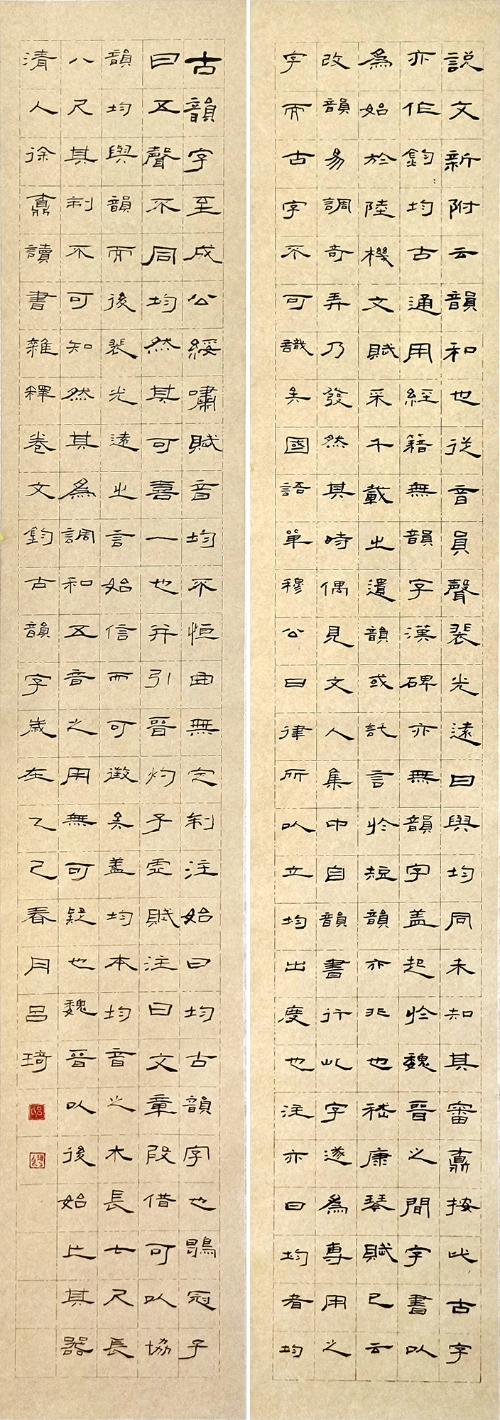 說文新附云韻和也從音員聲裴光遠曰與均同未知其審鼒按此古字
亦作鈞均古通用經籍無韻字漢碑亦無韻字盖起於魏晉之間字書以
為始於陸機文賦采千載之遺韻或託言於短韻亦非也嵇康琴賦已云
改韻易調奇弄乃發然其時偶見文人集中自韻書行此字遂為專用之
字而古字不可識矣國語單穆公曰律所以立均出度也注亦曰均者均
古韻字至成公綏嘯賦音均不恒曲無定制注始曰均古韻字也鶡冠子
曰五聲不同均然其可喜一也并引晉灼子虛賦注曰文章段借可以協
韻均與韻而後裴光遠之言始信而可徵矣盖均本均音之木長七尺長
八尺其制不可知然其為調和五音之用無可疑也魏晉以後始亡其器
清人徐鼒讀書雜釋卷文鈞古韻字歲在乙巳春月呂琦